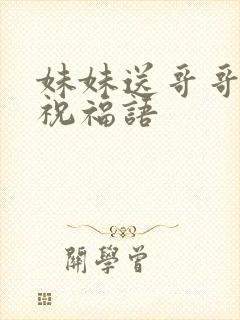 妹妹送哥哥
祝福語
關學曾